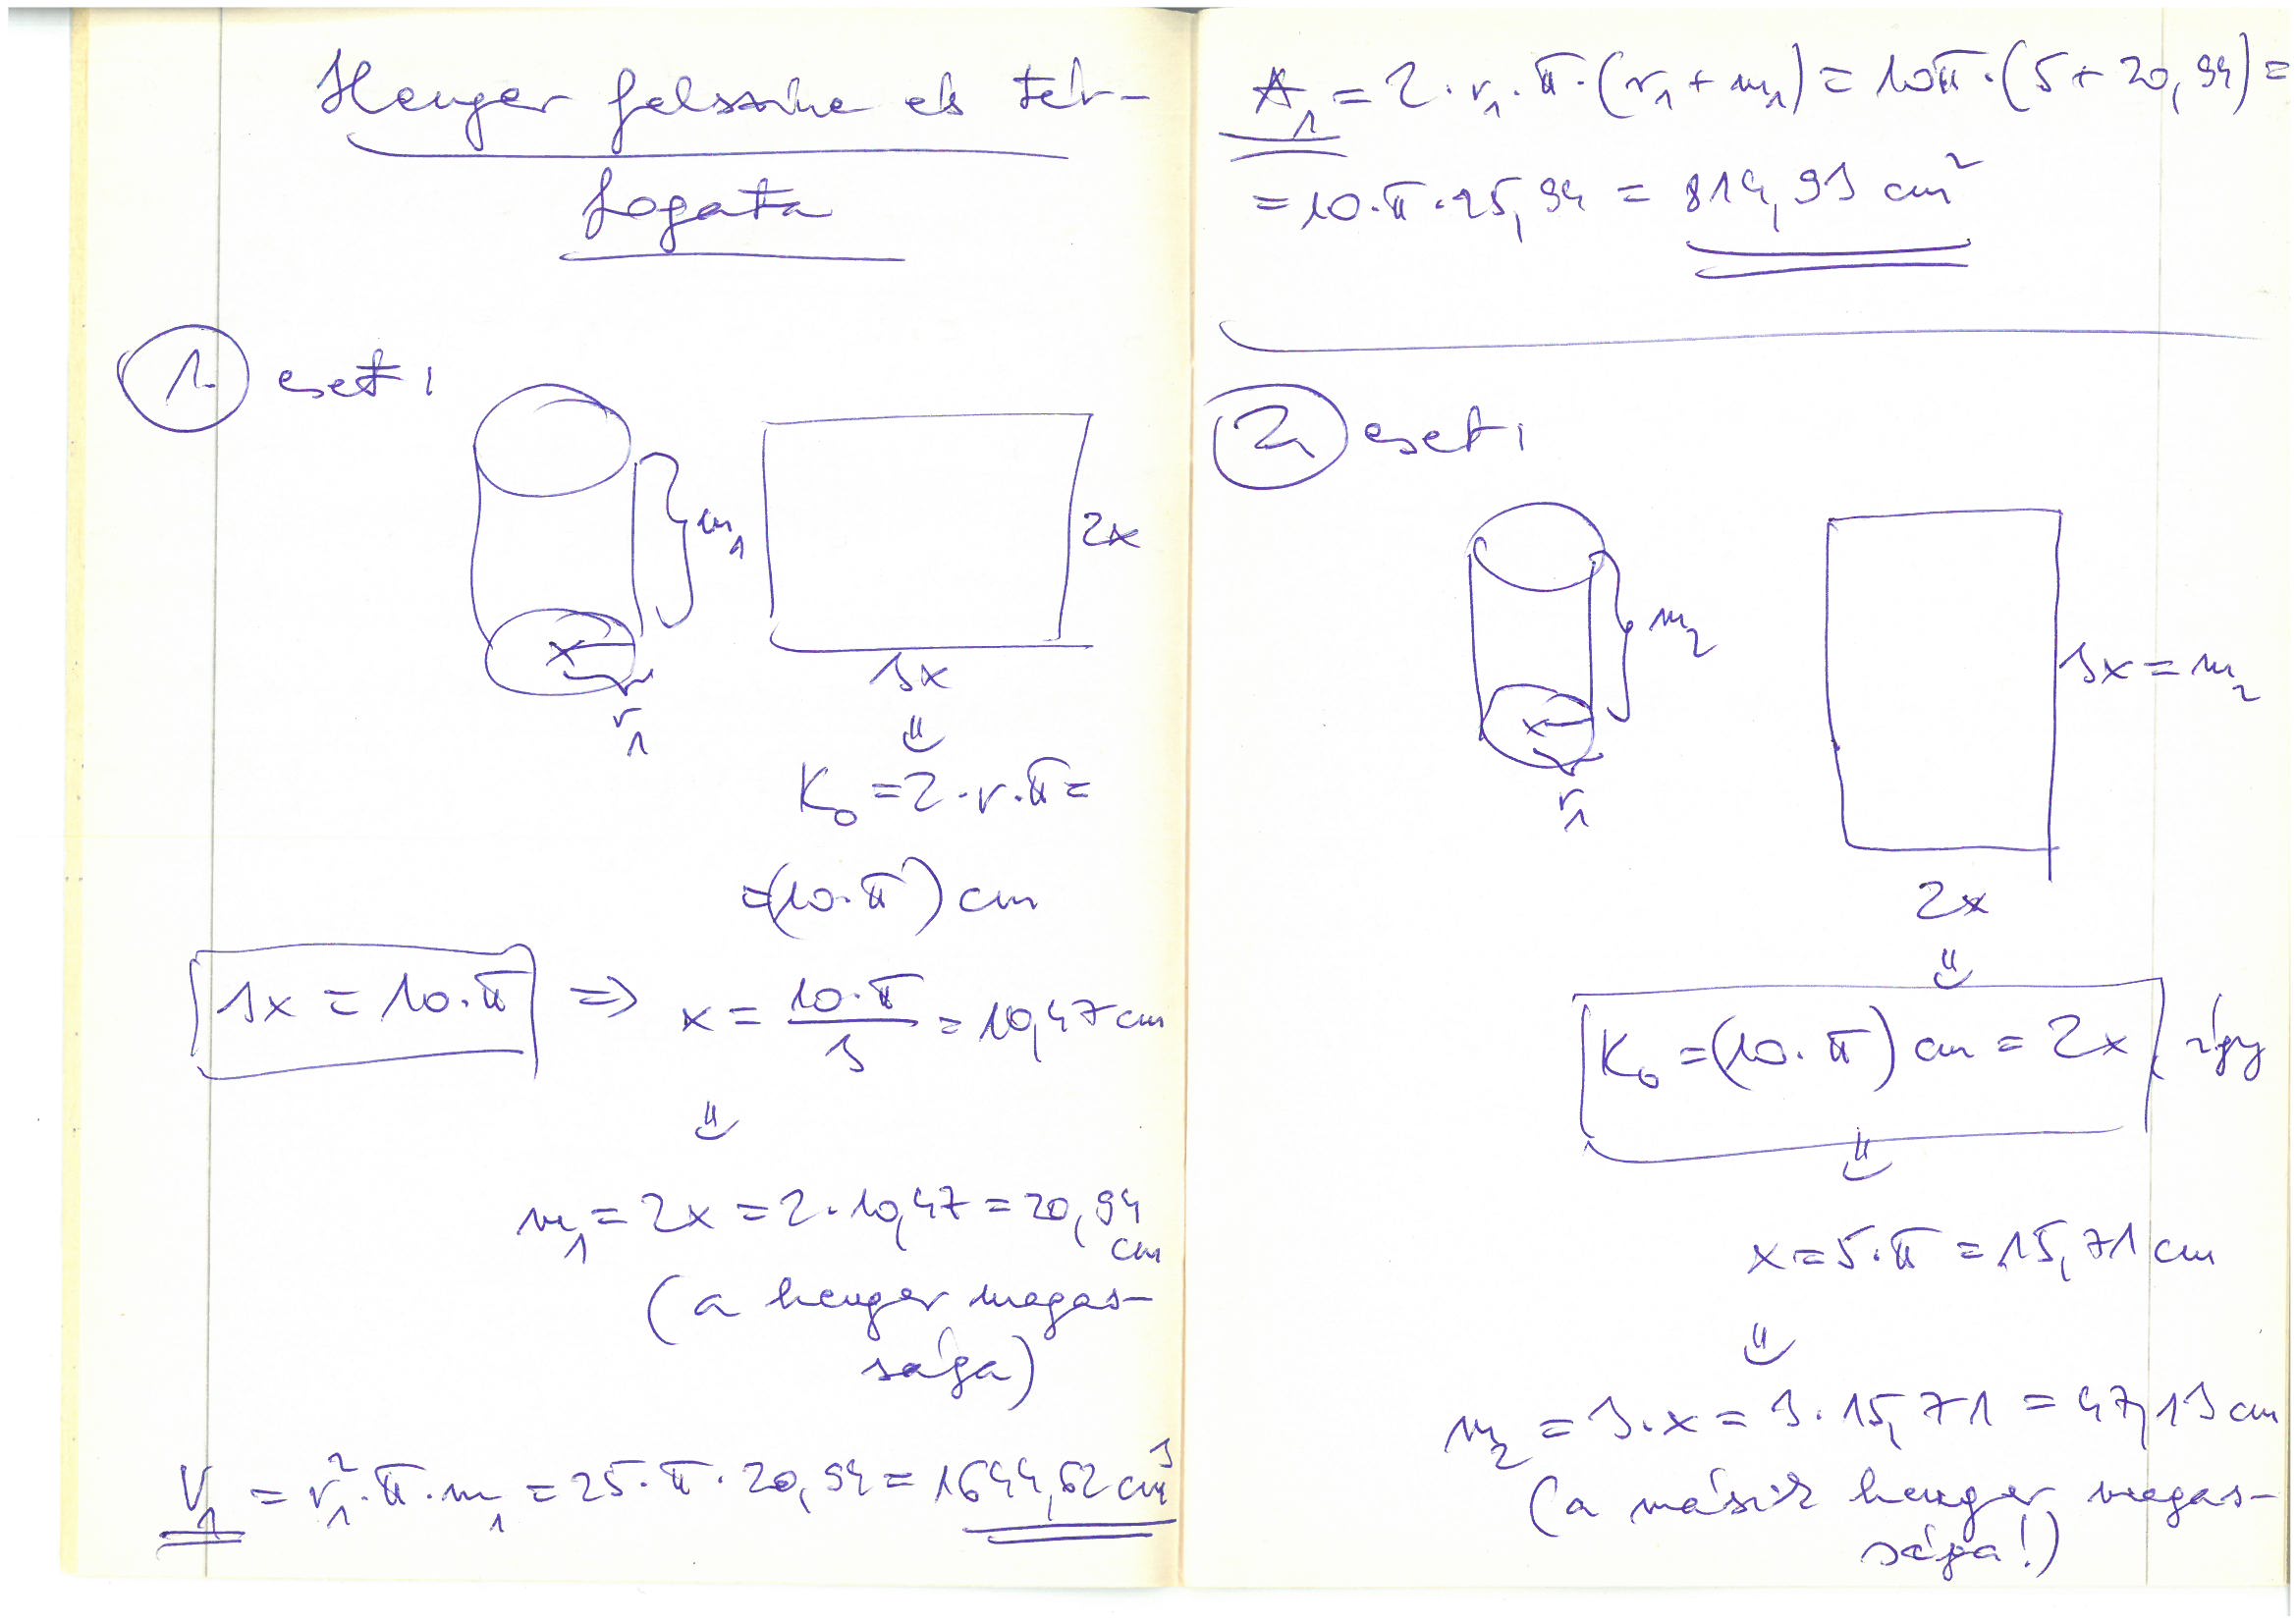 Henger felszíne és tér-
fogata
1. eset:
m₁
2x
3x
r₁
⇓
K₀ = 2·r·π =
= (10·π) cm
3x = 10·π ⇒ x = 10·π/3 = 10,47 cm
⇓
m₁ = 2x = 2·10,47 = 20,94 cm
(a henger magas-
sága)
V₁ = r₁²·π·m₁ = 25·π·20,94 = 1644,62 cm³
A₁ = 2·r₁·π·(r₁+m₁) = 10π·(5+20,94) =
= 10·π·25,94 = 814,93 cm²
2. eset:
m₂
3x = m₂
r₁
2x
⇓
K₀ = (10·π) cm = 2x így
⇓
x = 5·π = 15,71 cm
⇓
m₂ = 3·x = 3·15,71 = 47,13 cm
(a másik henger magas-
sága!)